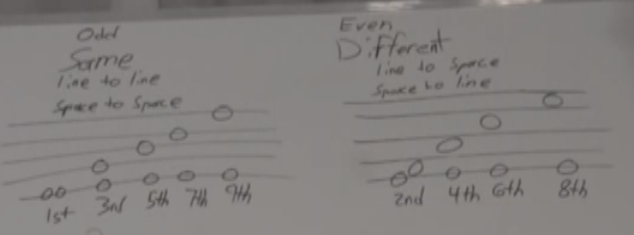 Odd
Same
line to line
Space to Space
1st 3rd 5th 7th 9th
Even
Different
line to space
space to line
2nd 4th 6th 8th